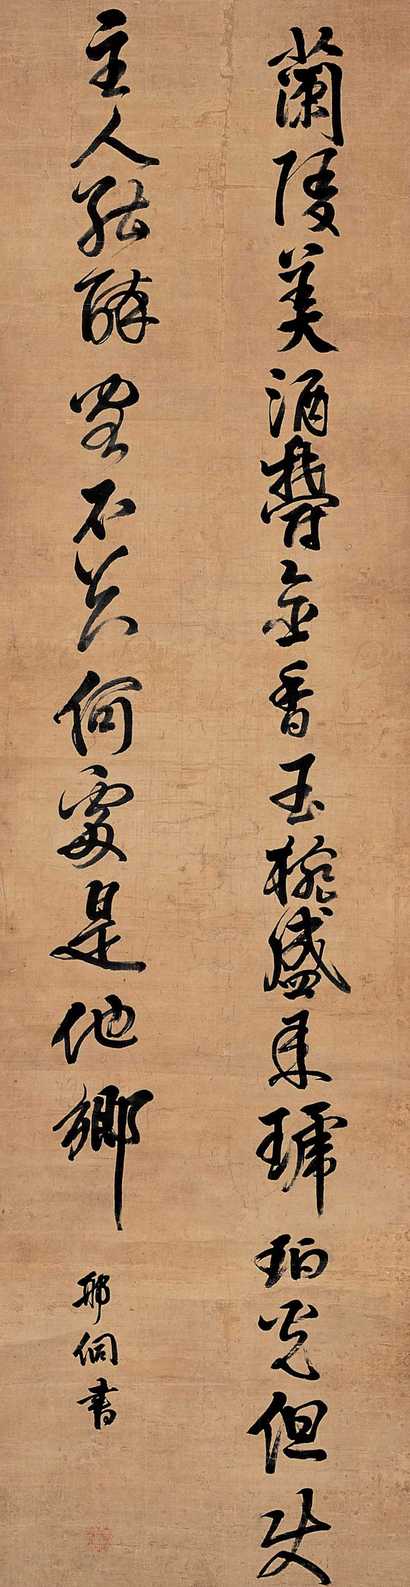 蘭陵美酒鬱金香玉椀盛來琥珀光但使
主人能醉客不知何處是他鄉
邢侗書